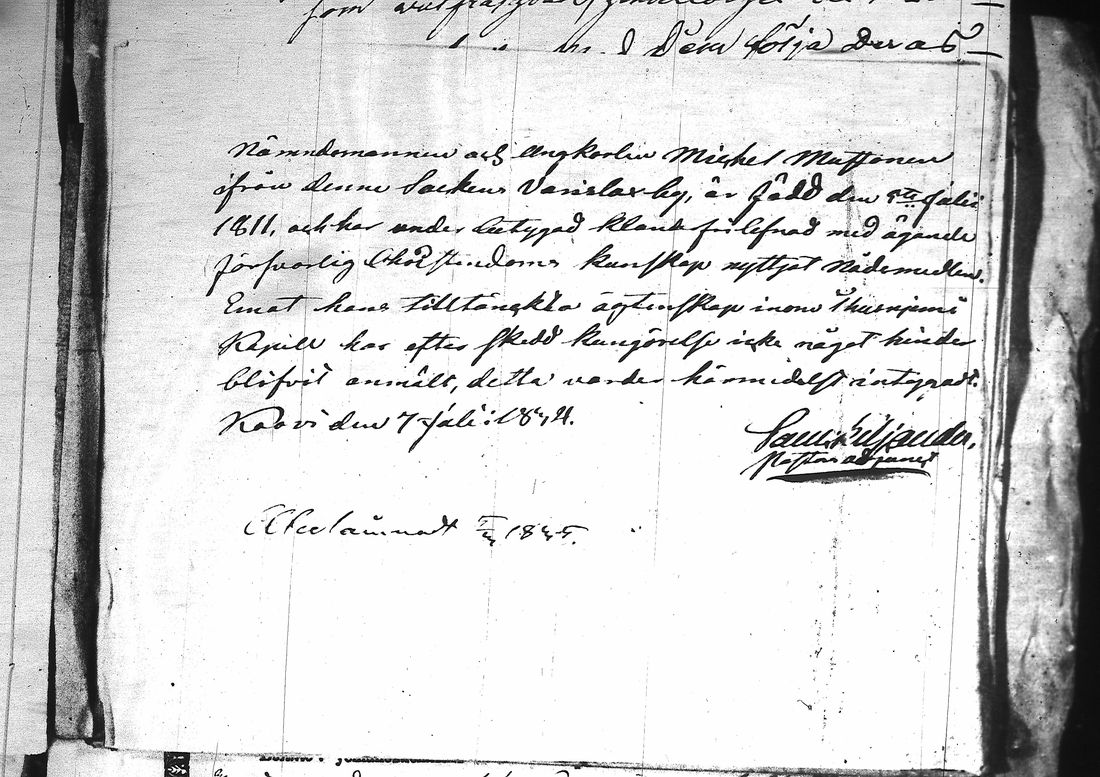 den följa deras
Nämndemannen och Ungkarlen Michel Mattonen
ifrån denne Socken Varislax by, är född den 5te Julii
1811, och har under betygad klanderfri lefnad med ägande
försvarlig Christendoms kunskap nyttjat Nådemedlen.
Emot hans tilltänckta ägtenskap inom Thusniemi
Kapell har efter skedd kungörelse icke något hinder
blifvit anmält, detta varder härmedelst intygadt.
Kaavi den 7 Julii 1844.
Saml. Ciljander.
Pastors adjunct
Afverlämnadt 1845.